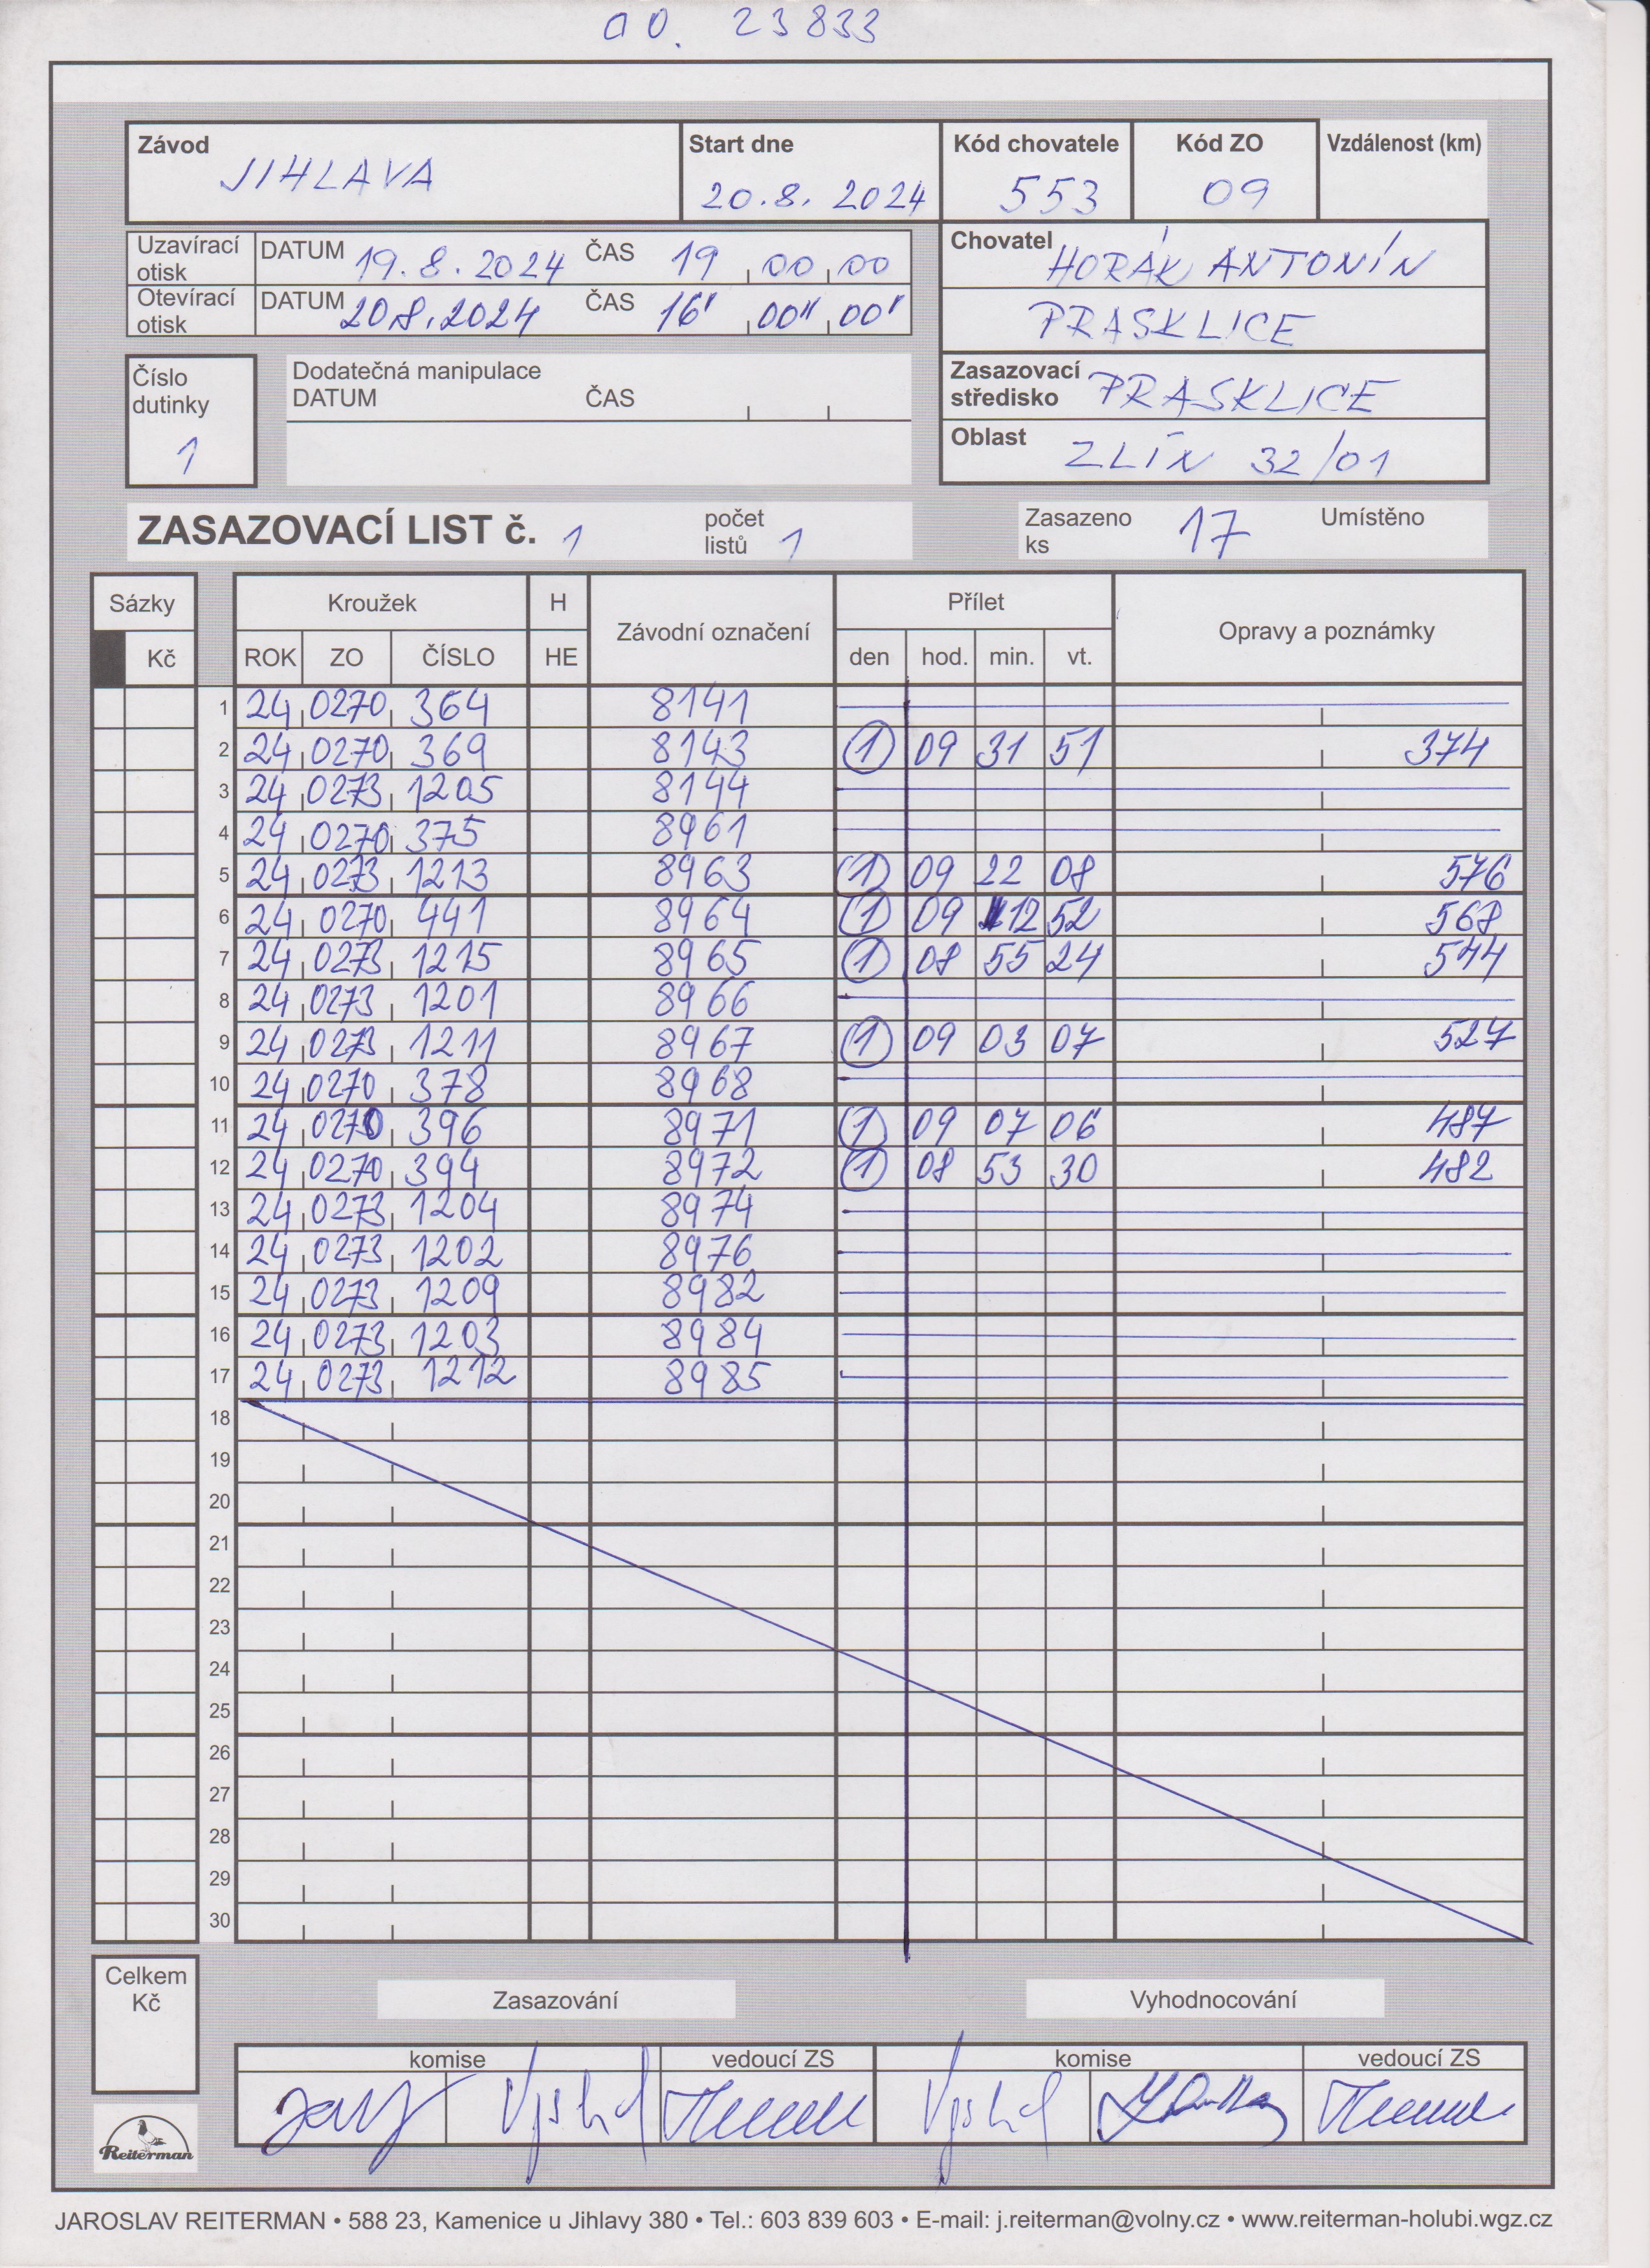 a0. 23833
Závod Start dne Kód chovatele Kód ZO Vzdálenost (km)
JIHLAVA 20.8. 2024 553 09
Uzavírací otisk DATUM 19.8.2024 ČAS 19 00 00
Otevírací otisk DATUM 20.8.2024 ČAS 16' 00" 00'
Chovatel HORÁK ANTONÍN
PRASKLICE
Číslo dutinky 1
Dodatečná manipulace
DATUM ČAS
Zasazovací středisko PRASKLICE
Oblast ZLÍN 32/01
ZASAZOVACÍ LIST č. 1 počet listů 1 Zasazeno ks 17 Umístěno
Sázky Kroužek H Závodní označení Přílet Opravy a poznámky
Kč ROK ZO ČÍSLO HE den hod. min. vt.
1 24 0270 364 8141
2 24 0270 369 8143 1 09 31 51 374
3 24 0273 1205 8144
4 24 0270 375 8961
5 24 0273 1213 8963 1 09 22 08 576
6 24 0270 441 8964 1 09 12 52 568
7 24 0273 1215 8965 1 08 55 24 544
8 24 0273 1201 8966
9 24 0273 1211 8967 1 09 03 07 527
10 24 0270 378 8968
11 24 0270 396 8971 1 09 07 06 487
12 24 0270 394 8972 1 08 53 30 482
13 24 0273 1204 8974
14 24 0273 1202 8976
15 24 0273 1209 8982
16 24 0273 1203 8984
17 24 0273 1212 8985
18
19
20
21
22
23
24
25
26
27
28
29
30
Celkem Kč
Zasazování Vyhodnocování
komise vedoucí ZS komise vedoucí ZS
Reiterman
JAROSLAV REITERMAN • 588 23, Kamenice u Jihlavy 380 • Tel.: 603 839 603 • E-mail: j.reiterman@volny.cz • www.reiterman-holubi.wgz.cz